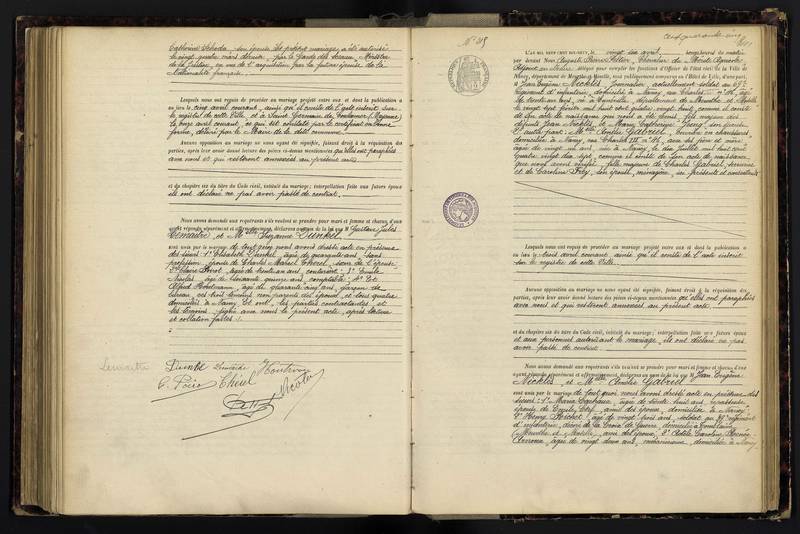 Catherine Schada, son épouse. Le présent mariage a été autorisé
le vingt quatre mars dernier, par le Garde des Sceaux Ministre
de la Justice, en vue de l'acquisition par la future épouse de la
nationalité française.
Lesquels nous ont requis de procéder au mariage projeté entre eux et dont la publication a
eu lieu le cinq avril courant, ainsi qu'il conste de l'acte inscrit sur
le registre de cette Ville, et à Saint Germain de
le onze avril courant, ce qui est constaté par le certificat en bonne
forme, délivré par le Maire de la dite commune.
Aucune opposition au mariage ne nous ayant été signifiée, faisant droit à la réquisition des
parties, après leur avoir donné lecture des pièces ci-dessus mentionnées qu'elles ont paraphées
avec nous et qui resteront annexées au présent acte
et du chapitre six du titre du Code civil, intitulé du mariage; interpellation faite aux futurs époux
ils ont déclaré ne pas avoir passé de contrat.
Nous avons demandé aux requérants s'ils veulent se prendre pour mari et femme et chacun d'eux
ayant répondu séparément et affirmativement, déclarons au nom de la loi que M. Gustave Jules
Lemaitre, et Melle Suzanne Dunkel
sont unis par le mariage. De tout quoi nous avons dressé acte en présence
des sieurs: 1° Elisabeth Dunkel, âgée de quarante ans, sans
profession, épouse de Charles Marcel Thérel, soeur de l'épouse
2° Claire âgée de trente un ans, couturière; 3° Emile
Nicolas, âgé de soixante quinze ans, comptable; 4° Et
Alfred Hontrmann, âgé de quarante cinq ans, garçon de
bureau, ces trois témoins non parents des époux, et tous quatre
domiciliés à Nancy. Et ont, les parties contractantes et
les témoins, signé avec nous le présent acte, après lecture
et collation faites.
Lemaitre Dunkel Lemaitre
Thérel Nicolas
N° 315
L'AN MIL NEUF CENT DIX-NEUF, le vingt six avril
par devant Nous Auguste Chevalier du Mérite Agricole
Adjoint au Maire délégué pour remplir les fonctions d'Officier de l'état civil de la Ville de
Nancy, département de Meurthe-et-Moselle, sont publiquement comparus en l'Hôtel de Ville, d'une part,
M. Jean Eugène Nicklès, Journalier, actuellement soldat au 69e
régiment d'infanterie, domicilié à Nancy, rue Charles III n° 46, âgé
de trente un ans, né à Lunéville, département de Meurthe et Moselle
le vingt sept février mil huit cent quatre vingt huit, comme il conste
de son acte de naissance que nous a été remis, fils majeur des
défunts Jean Nicklès et Marie Catherine son épouse.
D'autre part: Melle Amélie Gabriel, ouvrière en chaussures,
domiciliée à Nancy, rue Charles III n° 46, avec ses père et mère
âgée de vingt un ans, née à Nancy, le dix Juillet mil huit cent
quatre vingt dix sept, comme il conste de son acte de naissance,
que nous avons vérifié, fille majeure de Charles Gabriel,
et de Caroline Frey, son épouse, ménagère, ici présents et consentants
Lesquels nous ont requis de procéder au mariage projeté entre eux et dont la publication a
eu lieu le trois avril courant ainsi qu'il conste de l'acte inscrit
sur le registre de cette Ville.
Aucune opposition au mariage ne nous ayant été signifiée, faisant droit à la réquisition des
parties, après leur avoir donné lecture des pièces ci-dessus mentionnées qu'elles ont paraphées
avec nous et qui resteront annexées au présent acte
et du chapitre six du titre du Code civil, intitulé du mariage; interpellation faite aux futurs époux
et aux personnes autorisant le mariage, ils ont déclaré ne pas
avoir passé de contrat.
Nous avons demandé aux requérants s'ils veulent se prendre pour mari et femme et chacun d'eux
ayant répondu séparément et affirmativement, déclarons au nom de la loi que M. Jean Eugène
Nicklès, et Melle Amélie Gabriel
sont unis par le mariage. De tout quoi, nous avons dressé acte en présence des
sieurs: 1° Maria âgée de trente huit ans, repasseuse,
épouse de Emile amie des époux, domiciliée à Nancy;
2° Henry âgé de vingt trois ans, soldat au régiment
d'infanterie, décoré de la Croix de Guerre, domicilié à
Meurthe et Moselle, ami des époux; 3° Adèle Caroline
âgée de vingt deux ans, domiciliée à Nancy